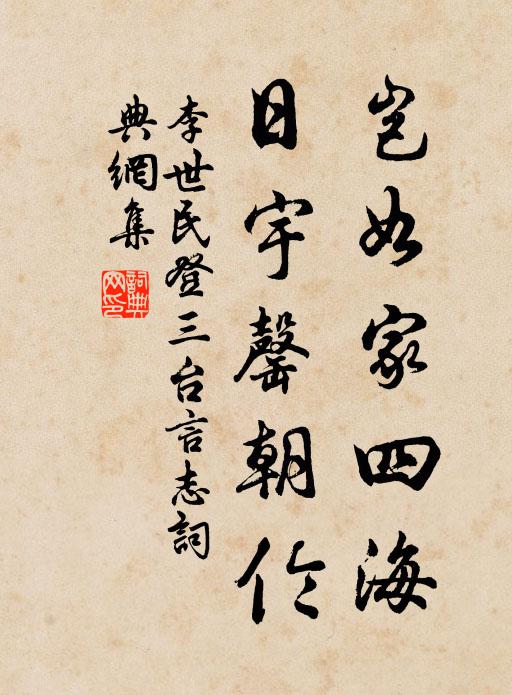 豈如家四海
日宇罄朝伦
李世民登三台言志詞
典網集
詞典网印